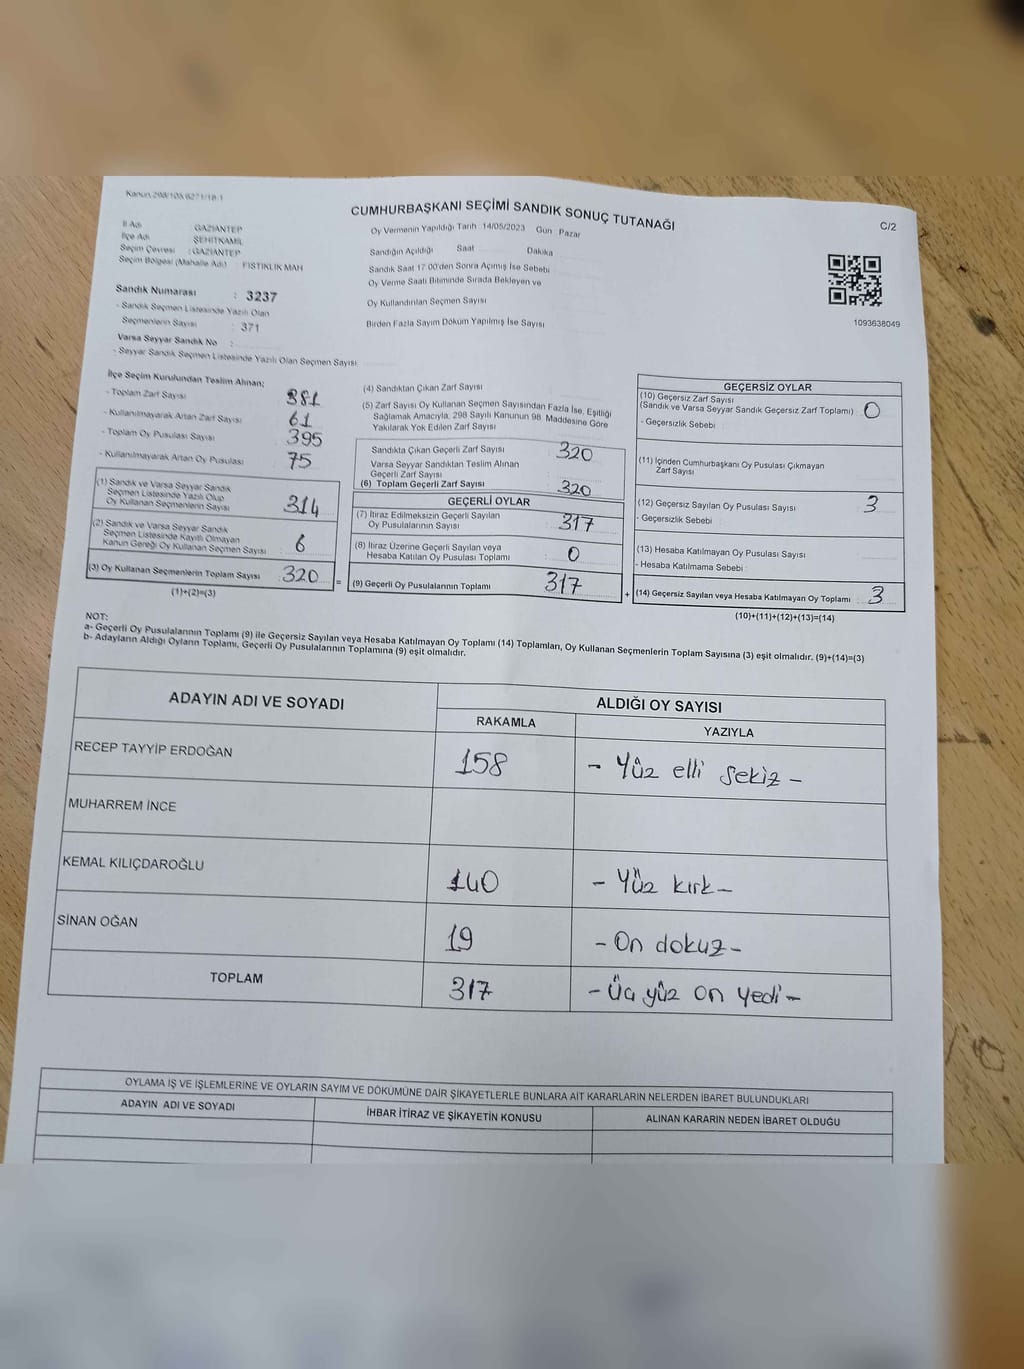 Kanun.298/105.6271/18-1
CUMHURBAŞKANI SEÇİMİ SANDIK SONUÇ TUTANAĞI
C/2
İl Adı : GAZİANTEP
İlçe Adı : ŞEHİTKAMİL
Seçim Çevresi : GAZİANTEP
Seçim Bölgesi (Mahalle Adı) : FISTIKLIK MAH
Sandık Numarası : 3237
- Sandık Seçmen Listesinde Yazılı Olan
Seçmenlerin Sayısı : 371
Varsa Seyyar Sandık No :
- Seyyar Sandık Seçmen Listesinde Yazılı Olan Seçmen Sayısı
Oy Vermenin Yapıldığı Tarih 14/05/2023 Gün : Pazar
Sandığın Açıldığı Saat Dakika
Sandık Saat 17.00'den Sonra Açımış İse Sebebi
Oy Verme Saati Bitiminde Sırada Bekleyen ve
Oy Kullandırılan Seçmen Sayısı
Birden Fazla Sayım Döküm Yapılmış İse Sayısı
1093638049
İlçe Seçim Kurulundan Teslim Alınan;
- Toplam Zarf Sayısı 381
- Kullanılmayarak Artan Zarf Sayısı 61
- Toplam Oy Pusulası Sayısı 395
- Kullanılmayarak Artan Oy Pusulası 75
(1) Sandık ve Varsa Seyyar Sandık
Seçmen Listesinde Yazılı Olup
Oy Kullanan Seçmenlerin Sayısı 314
(2) Sandık ve Varsa Seyyar Sandık
Seçmen Listesinde Kayıtlı Olmayan
Kanun Gereği Oy Kullanan Seçmen Sayısı : 6
(3) Oy Kullanan Seçmenlerin Toplam Sayısı : 320 =
(1)+(2)=(3)
(4) Sandıktan Çıkan Zarf Sayısı
(5) Zarf Sayısı Oy Kullanan Seçmen Sayısından Fazla İse, Eşitliği
Sağlamak Amacıyla, 298 Sayılı Kanunun 98. Maddesine Göre
Yakılarak Yok Edilen Zarf Sayısı
Sandıkta Çıkan Geçerli Zarf Sayısı : 320
Varsa Seyyar Sandıktan Teslim Alınan
Geçerli Zarf Sayısı
(6) Toplam Geçerli Zarf Sayısı : 320
GEÇERLİ OYLAR
(7) İtiraz Edilmeksizin Geçerli Sayılan
Oy Pusulalarının Sayısı : 317
(8) İtiraz Üzerine Geçerli Sayılan veya
Hesaba Katılan Oy Pusulası Toplamı : 0
(9) Geçerli Oy Pusulalarının Toplamı : 317 +
GEÇERSİZ OYLAR
(10) Geçersiz Zarf Sayısı
(Sandık ve Varsa Seyyar Sandık Geçersiz Zarf Toplamı) : 0
- Geçersizlik Sebebi :
(11) İçinden Cumhurbaşkanı Oy Pusulası Çıkmayan
Zarf Sayısı
(12) Geçersiz Sayılan Oy Pusulası Sayısı : 3
- Geçersizlik Sebebi
(13) Hesaba Katılmayan Oy Pusulası Sayısı
- Hesaba Katılmama Sebebi :
(14) Geçersiz Sayılan veya Hesaba Katılmayan Oy Toplamı : 3
(10)+(11)+(12)+(13)=(14)
NOT:
a- Geçerli Oy Pusulalarının Toplamı (9) ile Geçersiz Sayılan veya Hesaba Katılmayan Oy Toplamı (14) Toplamları, Oy Kullanan Seçmenlerin Toplam Sayısına (3) eşit olmalıdır. (9)+(14)=(3)
b- Adayların Aldığı Oyların Toplamı, Geçerli Oy Pusulalarının Toplamına (9) eşit olmalıdır.
ADAYIN ADI VE SOYADI
ALDIĞI OY SAYISI
RAKAMLA YAZIYLA
RECEP TAYYİP ERDOĞAN 158 - Yüz elli sekiz -
MUHARREM İNCE
KEMAL KILIÇDAROĞLU 140 - Yüz kırk -
SİNAN OĞAN 19 - On dokuz -
TOPLAM 317 - Üç yüz on yedi -
OYLAMA İŞ VE İŞLEMLERİNE VE OYLARIN SAYIM VE DÖKÜMÜNE DAİR ŞİKAYETLERLE BUNLARA AİT KARARLARIN NELERDEN İBARET BULUNDUKLARI
ADAYIN ADI VE SOYADI İHBAR İTİRAZ VE ŞİKAYETİN KONUSU ALINAN KARARIN NEDEN İBARET OLDUĞU